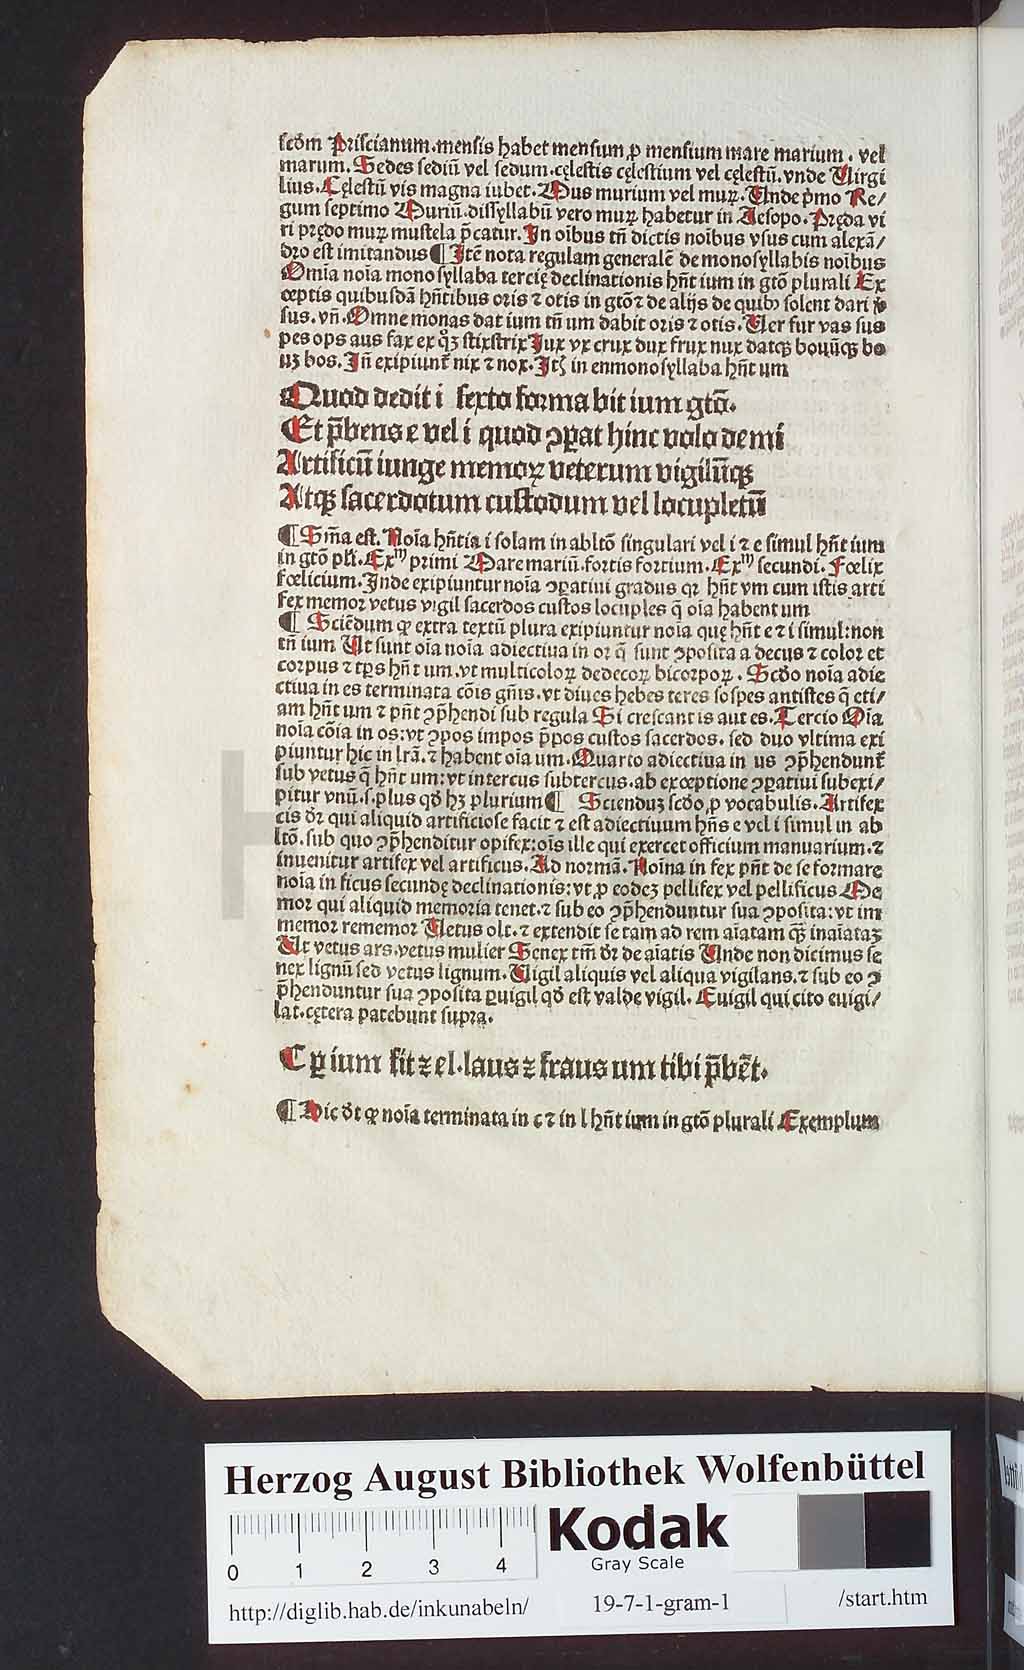 scd̄m Priscianum. mensis habet mensum ꝓ mensium mare marium. vel
marum. Sedes sediū vel sedum. cęlestis cęlestium vel cęlestū. vnde Virgi
lius. Cęlestū vis magna iubet. Mus murium vel muꝝ. Unde p̄mo Re/
gum septimo Muriū. dissyllabū vero muꝝ habetur in Aesopo. Pręda vi
ri prędo muꝝ mustela p̄catur. In oībus tn̄ dictis noībus vsus cum alexā/
dro est imitandus ¶ Itē nota regulam generalē de monosyllabis noībus
Omīa noīa monosyllaba tercię declinationis hn̄t ium in gtō plurali Ex
ceptis quibusdā hn̄tibus oris ⁊ otis in gtō ⁊ de alijs de quibꝰ solent dari
sus. vn̄. Omne monas dat ium tn̄ um dabit oris ⁊ otis. Ver fur vas sus
pes ops aus fax ex stix strix Iux vx crux dux frux nux datqꝫ bouūqꝫ bo
bos. In̄ exipiunt̄ nix ⁊ nox. in enmonosyllaba hn̄t um
Quod dedit i sexto formabit ium gtō.
Et p̄bens e vel i quod ꝯꝑat hinc volo demi
Artificū iunge memoꝝ veterum vigilūqꝫ
Atqꝫ sacerdotum custodum vel locupletū
¶ Sn̄ia est. Noīa hn̄tia i solam in abltō singulari vel i ⁊ e simul hn̄t ium
in gtō pl̄i. Exᵐ primi Mare mariū. fortis fortium. Exᵐ secundi. Fœlix
fœlicium. Inde exipiuntur noīa ꝯꝑatiui gradus qꝛ hn̄t vm cum istis arti
fex memor vetus vigil sacerdos custos locuples q̄ oīa habent um
¶ Sciēdum ꝙ extra textū plura exipiuntur noīa quę hn̄t e ⁊ i simul: non
tn̄ ium Ut sunt oīa noīa adiectiua in or q̄ sunt ꝯposita a decus ⁊ color et
corpus ⁊ tp̄s hn̄t um. vt multicoloꝝ dedecoꝝ bicorpoꝝ. Scd̄o noīa adie
ctiua in es terminata cōis gn̄is. vt diues hebes teres sospes antistes q̄ eti/
am hn̄t um ⁊ pn̄t ꝯp̄hendi sub regula Si crescant is aut es. Tercio Oīa
noīa cōia in os: vt ꝯpos impos p̄pos custos sacerdos. sed duo vltima exi
piuntur hic in lr̄a. ⁊ habent oīa um. Quarto adiectiua in us ꝯp̄hendunt̄
sub vetus q̄ hn̄t um: vt intercus subtercus. ab exceptione ꝯꝑatiui subexi/
pitur vnū. s. plus qd̄ hꝫ plurium ¶ Scienduꝫ scd̄o ꝓ vocabulis. Artifex
cis dr̄ qui aliquid artificiose facit ⁊ est adiectiuum hn̄s e vel i simul in ab
ltō. sub quo ꝯp̄henditur opifex: oīs ille qui exercet officium manuarium. ⁊
inuenitur artifex vel artificus. Ad normā. Noīna in fex pn̄t de se formare
noīa in ficus secundę declinationis: vt ꝓ eodeꝫ pellifex vel pellificus Me
mor qui aliquid memoria tenet. ⁊ sub eo ꝯp̄henduntur sua ꝯposita: vt im
memor rememor Vetus olt. ⁊ extendit se tam ad rem aīatam qꝫ inaīataꝫ
Ut vetus ars. vetus mulier Senex tm̄ dr̄ de aīatis Unde non dicimus se
nex lignū sed vetus lignum. Vigil aliquis vel aliqua vigilans. ⁊ sub eo ꝯ
p̄henduntur sua ꝯposita ꝑuigil qd̄ est valde vigil. Euigil qui cito euigi/
lat. cętera patebunt supra.
C ꝑ ium fit ⁊ el. laus ⁊ fraus um tibi p̄bēt.
¶ Hic dt̄ ꝙ noīa terminata in c ⁊ in l hn̄t ium in gtō plurali Exemplum
Herzog August Bibliothek Wolfenbüttel
0 1 2 3 4
Kodak
Gray Scale
http://diglib.hab.de/inkunabeln/ 19-7-1-gram-1 /start.htm